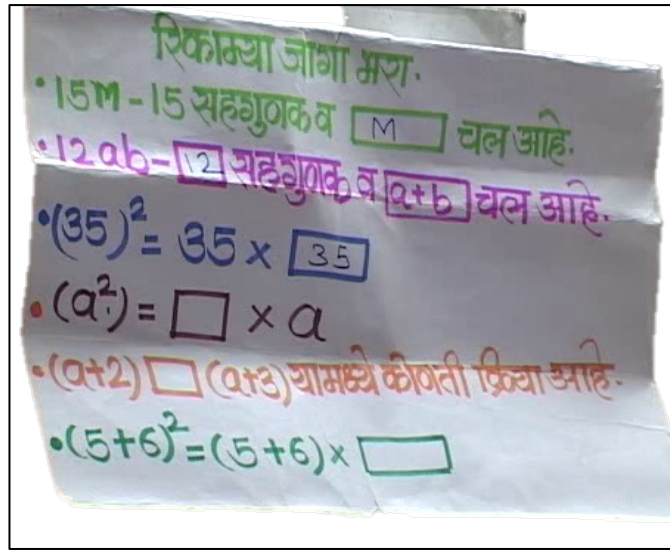 रिकाम्या जागा भरा.
• 15M - 15 सहगुणक व M चल आहे.
• 12ab - 12 सहगुणक व a+b चल आहे.
• (35)² = 35 × 35
• (a²) = □ × a
• (a+2) □ (a+3) यामध्ये कोणती क्रिया आहे.
• (5+6)² = (5+6) × □